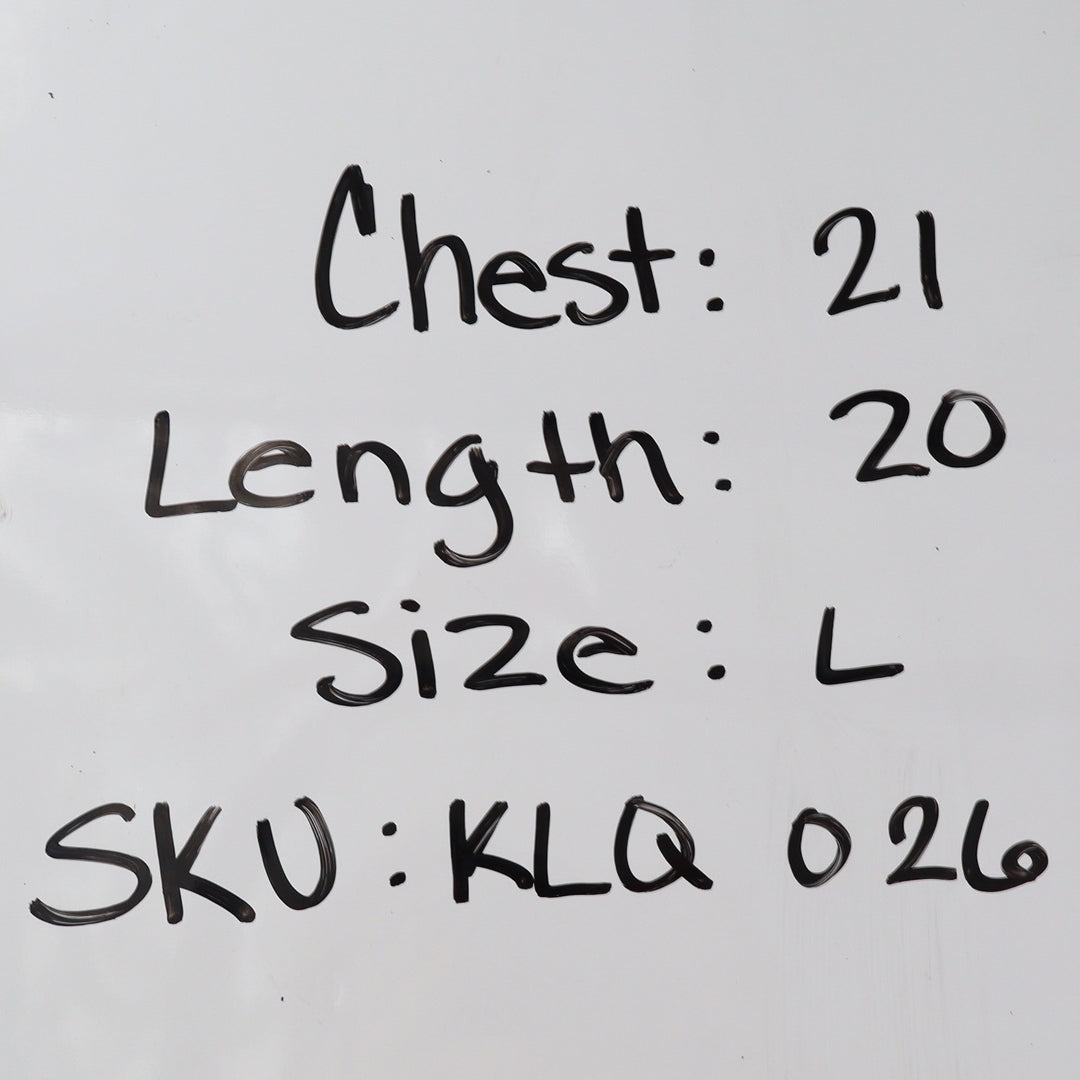 Chest: 21
Length: 20
Size: L
SKU: KLQ 026